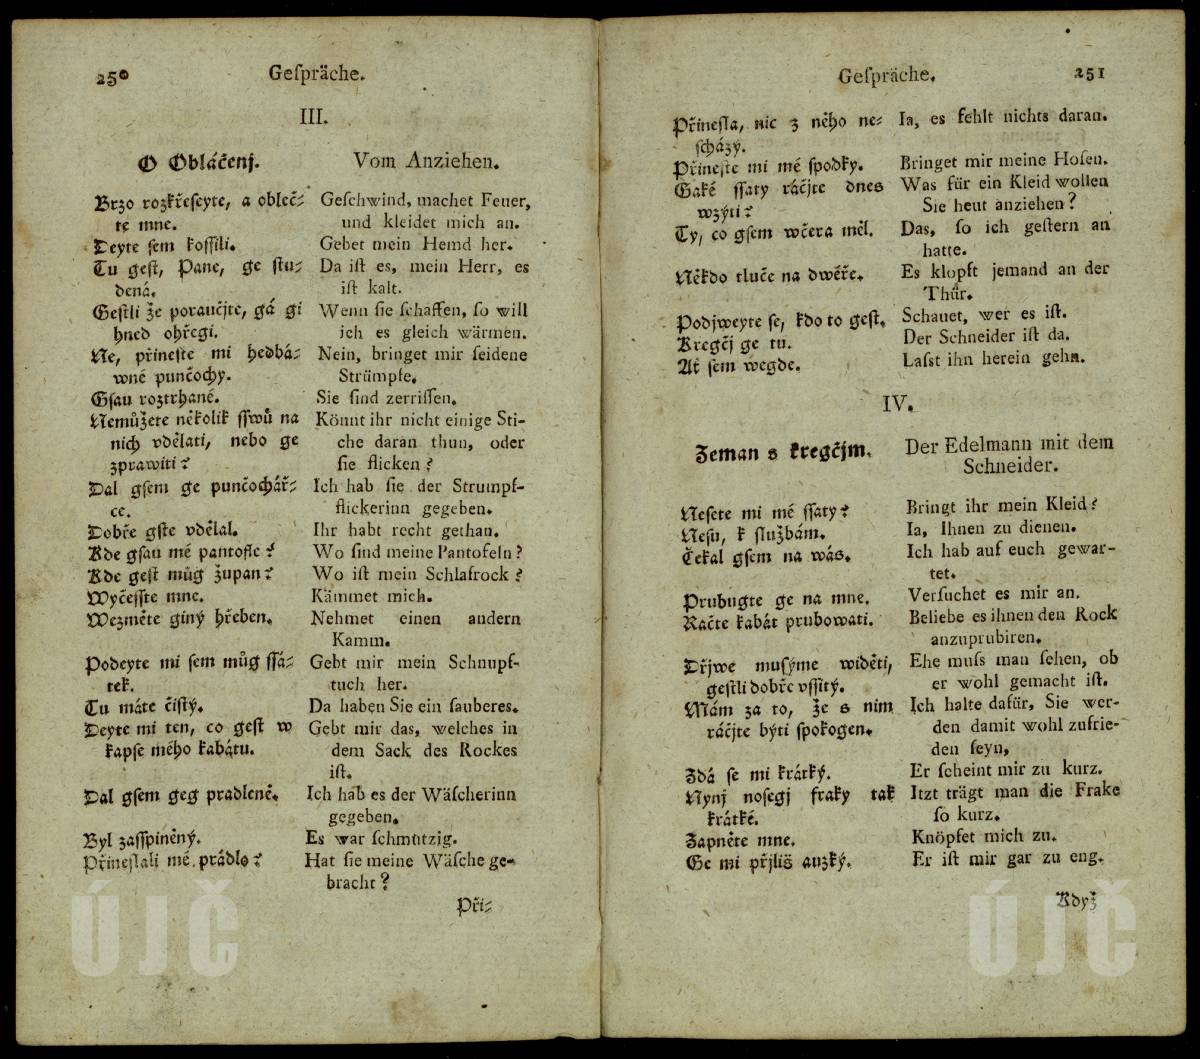 250 Geſpräche.
III.
O Obláčenj.
Brzo rozkřeſeyte, a obleč⸗
te mne.
Deyte ſem koſſili.
Tu geſt, Pane, ge ſtu⸗
dená.
Geſtli že poraučjte, gá gi
hned ohřegi.
Ne, přineſte mi hedbá⸗
wné punčochy.
Gſau roztrhané.
Nemůžete několik ſſwů na
nich vdělati, nebo ge
zprawiti?
Dal gſem ge punčochář⸗
ce.
Dobře gſte vdělal.
Kde gſau mé pantofle?
Kde geſt můg župan?
Wyčeſſte mne.
Wezměte giný hřeben.
Podeyte mi ſem můg ſſá⸗
tek.
Tu máte čiſtý.
Deyte mi ten, co geſt w
kapſe mého kabátu.
Dal gſem geg pradleně.
Byl zaſſpiněný.
Přineſlali mé prádlo?
Vom Anziehen.
Geſchwind, machet Feuer,
und kleidet mich an.
Gebet mein Hemd her.
Da iſt es, mein Herr, es
iſt kalt.
Wenn ſie ſchaffen, ſo will
ich es gleich wärmen.
Nein, bringet mir ſeidene
Strümpfe.
Sie ſind zerriſſen.
Könnt ihr nicht einige Sti-
che daran thun, oder
ſie flicken?
Ich hab ſie der Strumpf-
flickerinn gegeben.
Ihr habt recht gethan.
Wo ſind meine Pantofeln?
Wo iſt mein Schlafrock?
Kämmet mich.
Nehmet einen andern
Kamm.
Gebt mir mein Schnupf-
tuch her.
Da haben Sie ein ſauberes.
Gebt mir das, welches in
dem Sack des Rockes
iſt.
Ich hab es der Wäſcherinn
gegeben.
Es war ſchmutzig.
Hat ſie meine Wäſche ge-
bracht?
Při⸗
Geſpräche. 251
Přineſla, nic z něho ne⸗
ſcházý.
Přineſte mi mé ſpodky.
Gaké ſſaty ráčjte dnes
wzýti?
Ty, co gſem wčera měl.
Někdo tluče na dwéře.
Podjweyte ſe, kdo to geſt.
Kregčj ge tu.
Ať ſem wegde.
Ia, es fehlt nichts daran.
Bringet mir meine Hoſen.
Was für ein Kleid wollen
Sie heut anziehen?
Das, ſo ich geſtern an
hatte.
Es klopft jemand an der
Thür.
Schauet, wer es iſt.
Der Schneider iſt da.
Laſst ihn herein gehn.
IV.
Zeman s kregčjm.
Neſete mi mé ſſaty?
Neſu, k ſlužbám.
Čekal gſem na wás.
Prubugte ge na mne.
Račte kabát prubowati.
Dřjwe muſýme widěti,
geſtli dobře vſſitý.
Mám za to, že s nim
ráčjte býti ſpokogen.
Zdá ſe mi krátký.
Nynj noſegj fraky tak
krátké.
Zapněte mne.
Ge mi přjliš auzký.
Der Edelmann mit dem
Schneider.
Bringt ihr mein Kleid?
Ia, Ihnen zu dienen.
Ich hab auf euch gewar-
tet.
Verſuchet es mir an.
Beliebe es ihnen den Rock
anzuprubiren.
Ehe muſs man ſehen, ob
er wohl gemacht iſt.
Ich halte dafür, Sie wer-
den damit wohl zufrie-
den ſeyn,
Er ſcheint mir zu kurz.
Itzt trägt man die Frake
ſo kurz.
Knöpfet mich zu.
Er iſt mir gar zu eng.
Když
ÚJČ
ÚJČ